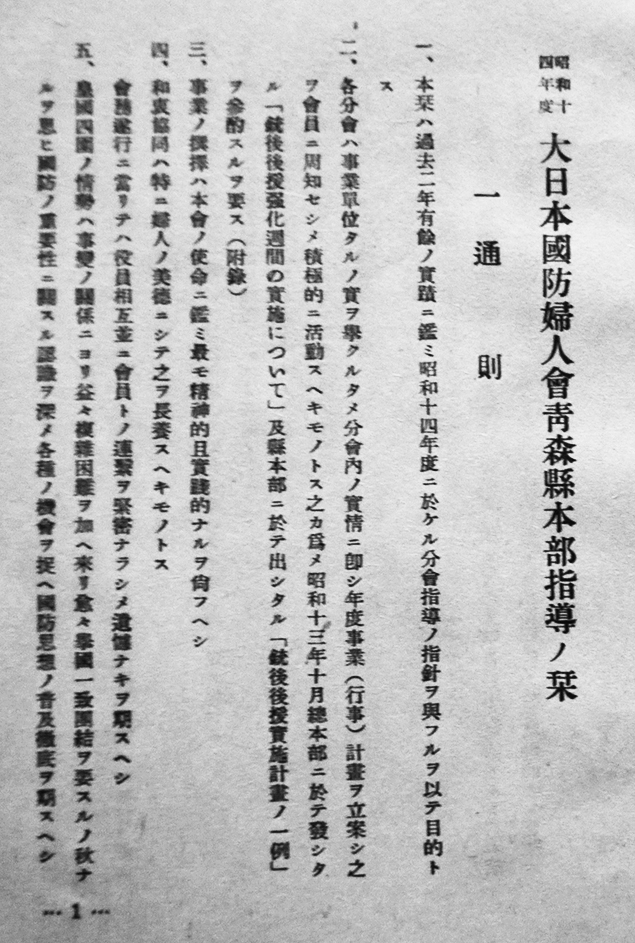 昭和十四年度 大日本國防婦人會靑森縣本部指導ノ栞
一 通則
一、本栞ハ過去二年有餘ノ實蹟ニ鑑ミ昭和十四年度ニ於ケル分會指導ノ指針ヲ與フルヲ以テ目的ト
ス
二、各分會ハ事業單位タルノ實ヲ擧クルタメ分會內ノ實情ニ卽シ年度事業（行事）計畫ヲ立案シ之
ヲ會員ニ周知セシメ積極的ニ活動スヘキモノトス之カ爲メ昭和十三年十月總本部ニ於テ發シタ
ル「銃後後援强化週間の實施について」及縣本部ニ於テ出シタル「銃後後援實施計畫ノ一例」
ヲ參酌スルヲ要ス（附錄）
三、事業ノ撰擇ハ本會ノ使命ニ鑑ミ最モ精神的且實踐的ナルヲ尙フヘシ
四、和衷協同ハ特ニ婦人ノ美德ニシテ之ヲ長養スヘキモノトス
會務遂行ニ當リテハ役員相互並ニ會員トノ連繫ヲ緊密ナラシメ遺憾ナキヲ期スヘシ
五、皇國四圍ノ情勢ハ事變ノ關係ニヨリ益々複雜困難ヲ加ヘ來リ愈々擧國一致團結ヲ要スルノ秋ナ
ルヲ思ヒ國防ノ重要性ニ關スル認識ヲ深メ各種ノ機會ヲ捉ヘ國防思想ノ普及徹底ヲ期スヘシ
… 1 …